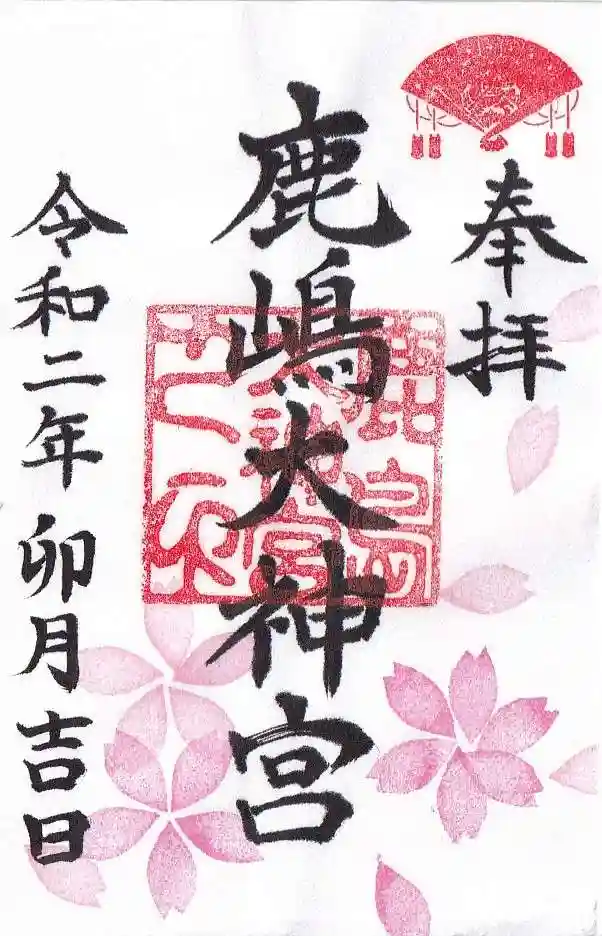 奉拝
鹿嶋大神宮
令和二年卯月吉日